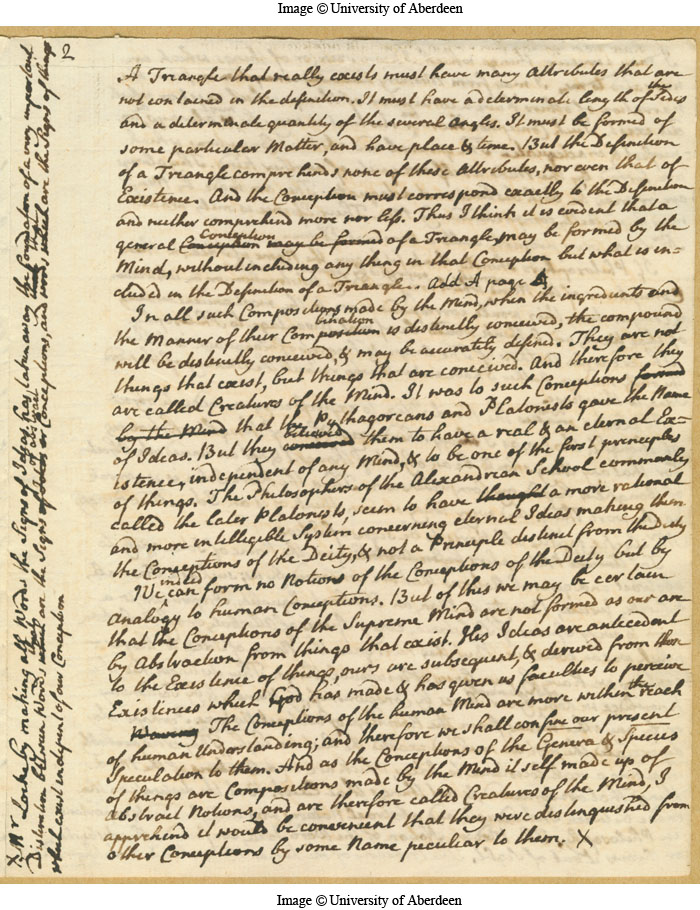 Image © University of Aberdeen
2
A Triangle that really exists must have many attributes that are
not contained in the definition. It must have a determinate length of the Sides
and a determinate quantity of the several angles. It must be formed of
some particular Matter, and have place & time. But the Definition
of a Triangle comprehends none of these Attributes, nor even that of
Existence. And the Conception must correspond exactly to the Definition
and neither comprehend more nor less. Thus I think it is evident that a
general Conception Conception may be formed of a Triangle, may be formed by the
Mind, without including any thing in that Conception but what is in=
cluded in the Definition of a Triangle. Add A page
In all such Compositions made by the Mind, when the ingredients and
the Manner of their Composition bination is distinctly conceived, the compound
will be distinctly conceived, & may be accurately defined. They are not
things that exist, but things that are conceived. And therefore they
are called Creatures of the Mind. It was to such Conceptions formed
by the Mind that the Pythagoreans and Platonists gave the Name
of Ideas. But they believed them to have a real & an eternal Ex=
istence, independent of any Mind, & to be one of the first principles
of things. The Philosophers of the Alexandrian School commonly
called the later Platonists, seem to have thought a more rational
and more intelligible System concerning eternal Ideas making them
the Conceptions of the Deity, & not a Principle distinct from the Deity
We indeed can form no Notions of the Conceptions of the Deity but by
analogy to human Conceptions. But of this we may be certain
that the Conceptions of the Supreme Mind are not formed as our are
by Abstraction from things that exist. His Ideas are antecedent
to the Existence of things, ours are subsequent, & derived from those
Existences which God has made & has given us faculties to perceive
Waving The Conceptions of the human Mind are more within the reach
of human Understanding; and therefore we shall confine our present
Speculation to them. And as the Conceptions of the Genera & Species
of things are Compositions made by the Mind it self made up of
abstract Notions, and are therefore called Creatures of the Mind, I
apprehend it would be convenient that they were distinguished from
other Conceptions by some Name peculiar to them. X
X Mr Locke by making all Words the Signs of Ideas, has taken away the foundation of a very important
Distinction between Words, which are the Signs of Conceptions, and words, which are the Signs of things
which exist independt of our Conception
Image © University of Aberdeen